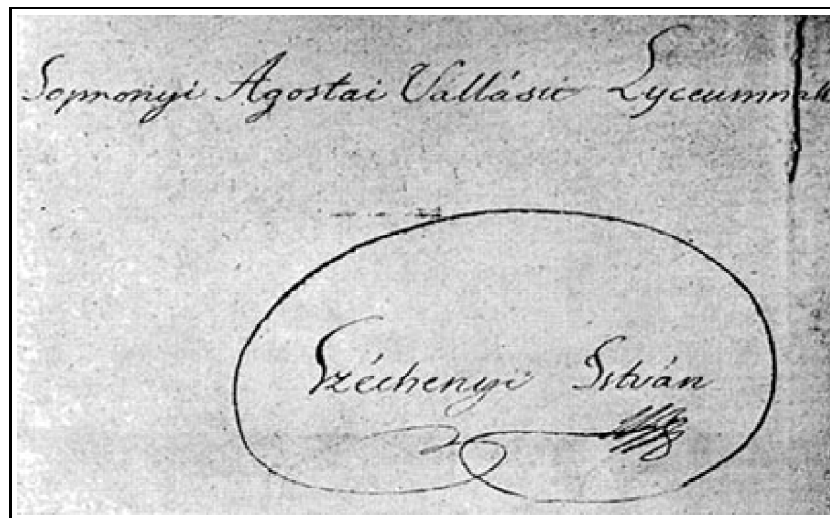 Sopronyi Agostai Vallásu Lyceumnak
Széchenyi István